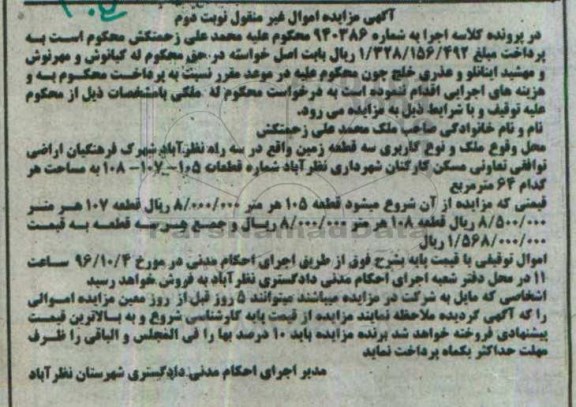 آگهی مزایده اموال غیر منقول نوبت دوم
در پرونده کلاسه اجرا به شماره ۹۴۰۳۸۶ محکوم علیه محمد علی زحمتکش محکوم است به
پرداخت مبلغ ۱/۳۲۸/۱۵۶/۴۹۲ ریال بابت اصل خواسته در حق محکوم له کیانوش و مهرنوش
و مهشید اینانلو و عذری خلج چون محکوم علیه در موعد مقرر نسبت به پرداخت محکوم به و
هزینه های اجرایی اقدام ننموده است به درخواست محکوم له ملکی بامشخصات ذیل از محکوم
علیه توقیف و با شرایط ذیل به مزایده می رود.
نام و نام خانوادگی صاحب ملک محمد علی زحمتکش
محل وقوع ملک و نوع کاربری سه قطعه زمین واقع در سه راه نظرآباد شهرک فرهنگیان اراضی
توافقی تعاونی مسکن کارکنان شهرداری نظرآباد شماره قطعات ۱۰۵- ۱۰۷- ۱۰۸ به مساحت هر
کدام ۶۴ مترمربع
قیمتی که مزایده از آن شروع میشود قطعه ۱۰۵ هر متر ۸/۰۰۰/۰۰۰ ریال قطعه ۱۰۷ هر متر
۸/۵۰۰/۰۰۰ ریال قطعه ۱۰۸ هر متر ۸/۰۰۰/۰۰۰ ریال و جمع هر سه قطعه به قیمت
۱/۵۶۸/۰۰۰/۰۰۰ ریال
اموال توقیفی با قیمت پایه بشرح فوق از طریق اجرای احکام مدنی در مورخ ۹۶/۱۰/۴ ساعت
۱۱ در محل دفتر شعبه اجرای احکام مدنی دادگستری نظرآباد به فروش خواهد رسید
اشخاصی که مایل به شرکت در مزایده میباشند میتوانند ۵ روز قبل از روز معین مزایده اموالی
را که آگهی گردیده ملاحظه نمایند مزایده از قیمت پایه کارشناسی شروع و به بالاترین قیمت
پیشنهادی فروخته خواهد شد برنده مزایده باید ۱۰ درصد بها را فی المجلس و الباقی را ظرف
مهلت حداکثر یکماه پرداخت نماید
مدیر اجرای احکام مدنی دادگستری شهرستان نظرآباد